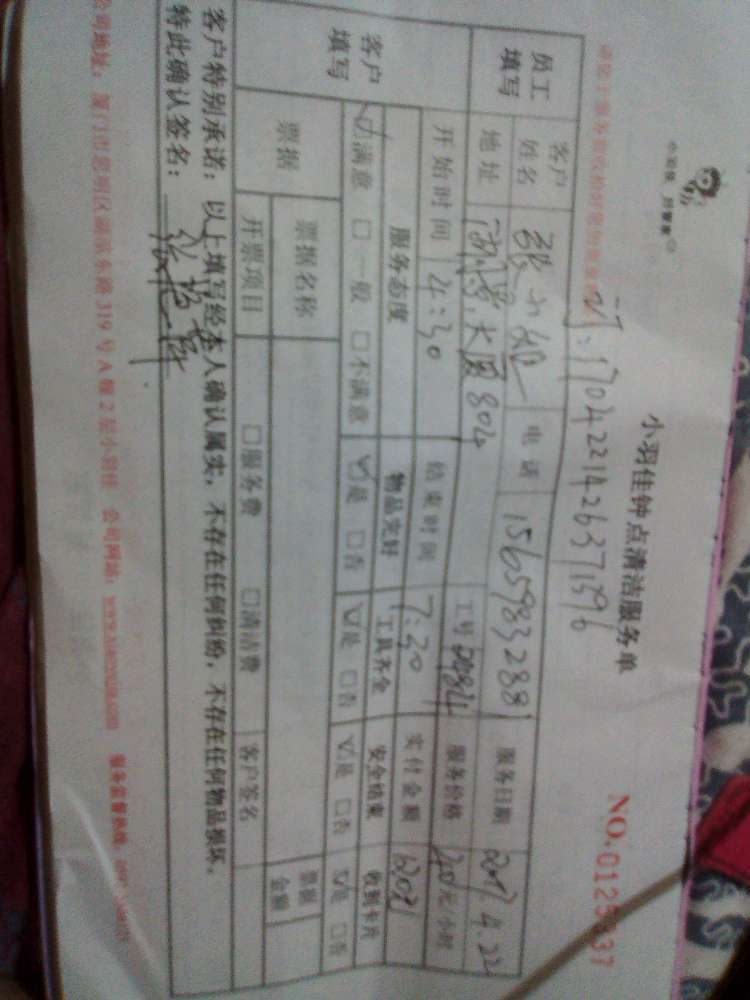 小羽佳钟点清洁服务单
NO.0125
1704221426371596
员工填写 客户姓名 张小姐 电话 15659832881 服务日期 2017.4.22
地址 大厦804 工号 服务价格 元/小时
开始时间 4:30 结束时间 7:30 实付金额 120元
客户填写 服务态度 物品完好 工具齐全 安全结束 收到卡片
☑满意 □一般 □不满意 ☑是 □否 ☑是 □否 ☑是 □否 ☑是 □否
票据 票据名称 票据金额
开票项目 □服务费 □清洁费 客户签名
客户特别承诺:以上填写经本人确认属实,不存在任何纠纷,不存在任何物品损坏。
特此确认签名:
公司地址:厦门市思明区湖滨东路319号A幢2层小羽佳 公司网站: 服务监督热线: